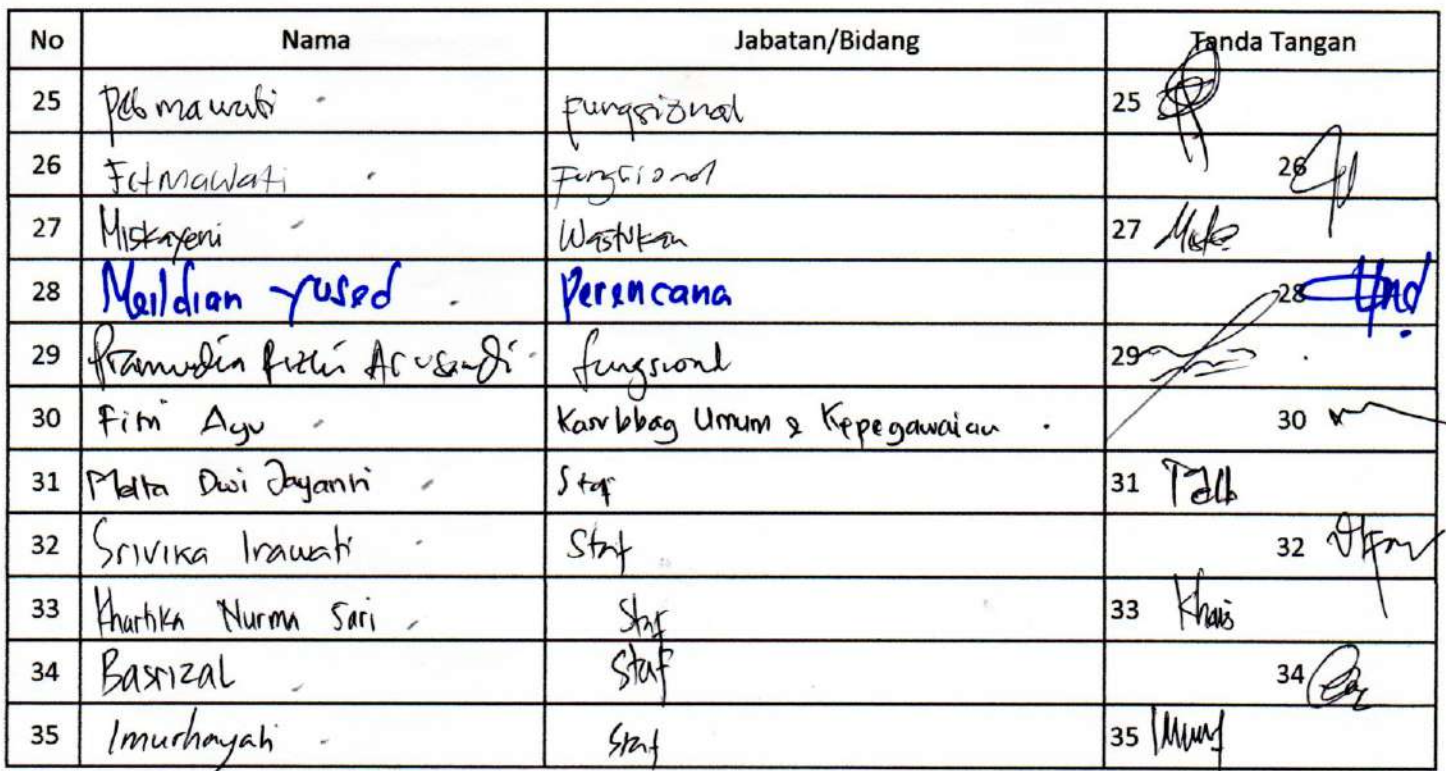 No Nama Jabatan/Bidang Tanda Tangan
25 Fungsional 25
26 Fitmawati Fungsional 26
27 Miskayeni Wastukan 27
28 Meildian Yused Perencana 28
29 Pramudia Fungsional 29
30 Fitri Ayu Kasubbag Umum & Kepegawaian 30
31 Melta Dwi Jayanti Staf 31
32 Srivika Irawati Staf 32
33 Khartika Nurma Sari Staf 33 Khais
34 Basrizal Staf 34
35 Imurhayati Staf 35